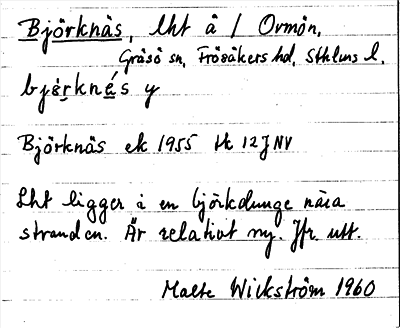 Björknäs, lht å / Ormön,
Gräsö sn, Frösåkers hd, Sthlms l.
bjęr̥knés y
Björknäs ek 1955 bl 12J NV
Lht ligger i en björkdunge nära
stranden. Är relativt ny. Jfr. utt.
Malte Wickström 1960